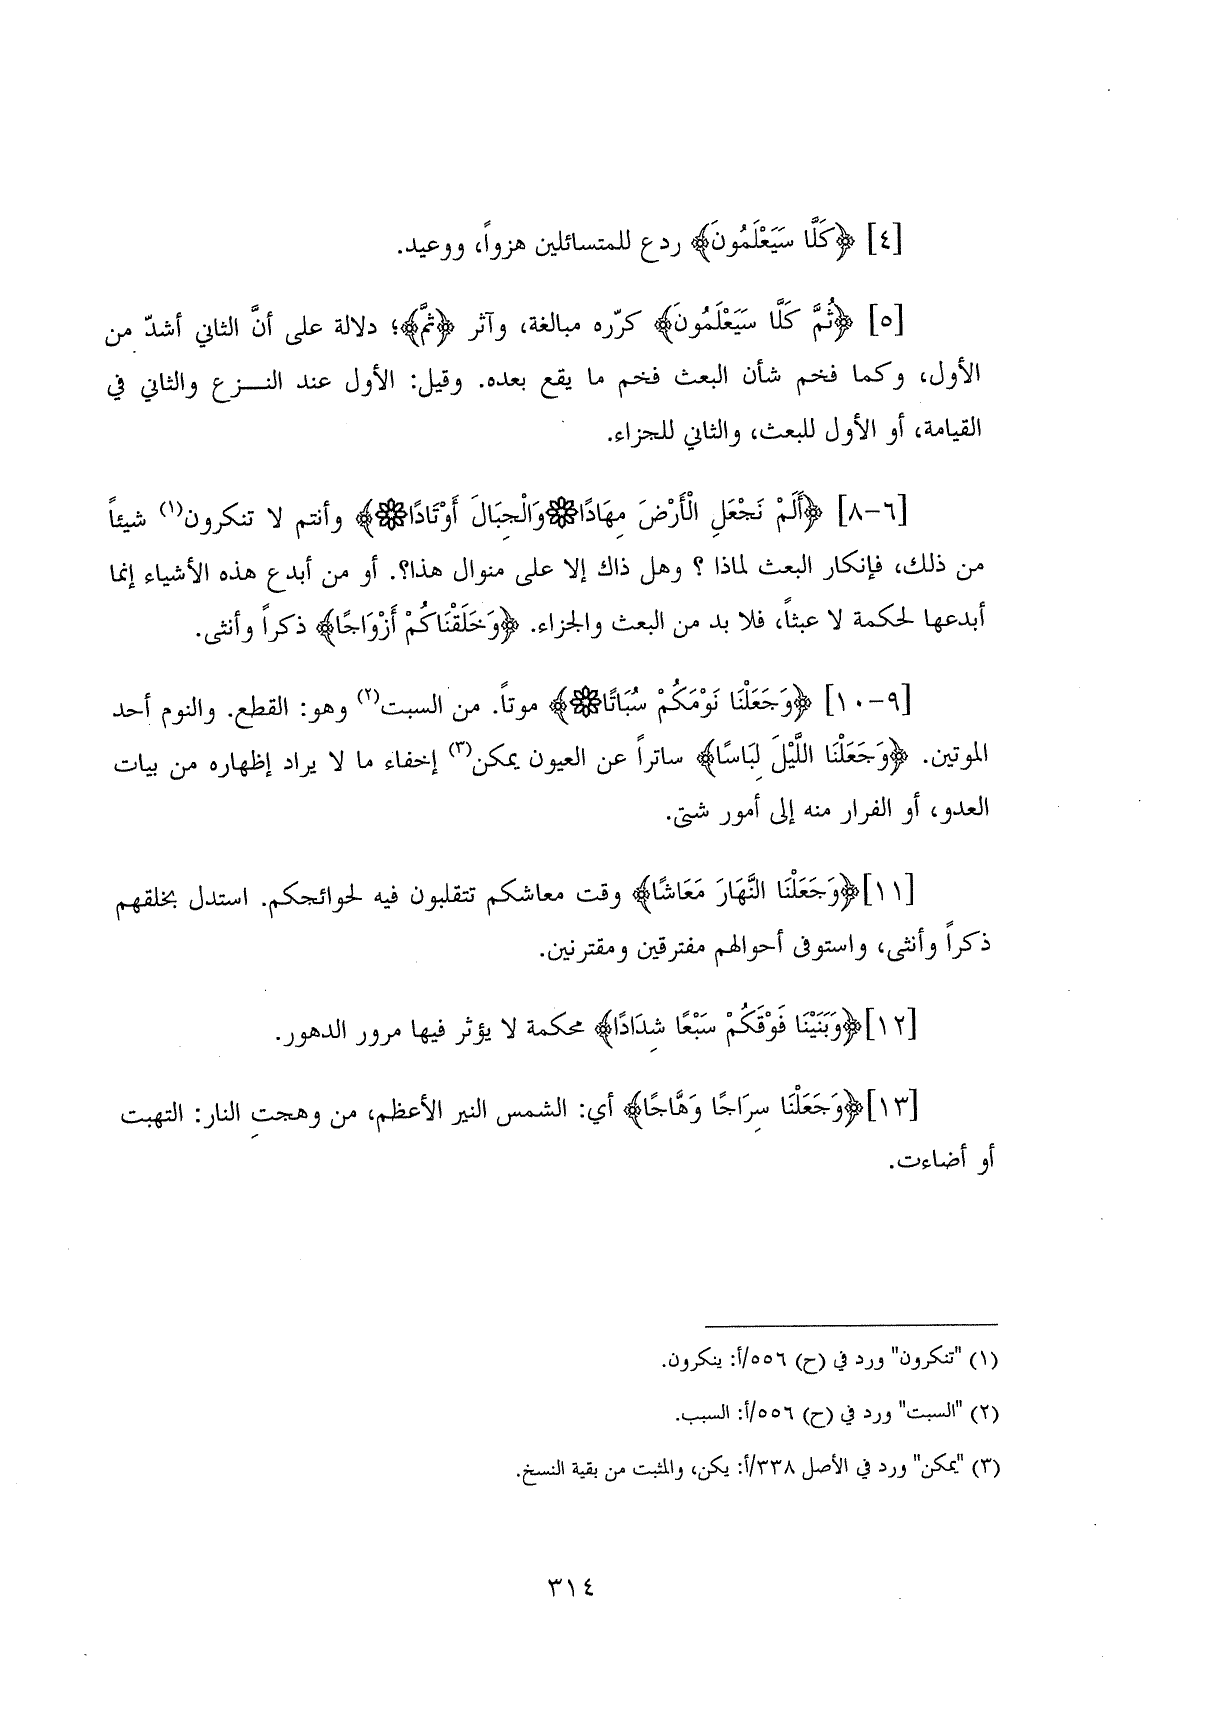 [٤] ﴿كَلَّا سَيَعْلَمُونَ﴾ ردع للمتسائلين هزواً، ووعيد.
[٥] ﴿ثُمَّ كَلَّا سَيَعْلَمُونَ﴾ كرّره مبالغة، وآثر ﴿ثمَّ﴾؛ دلالة على أنَّ الثاني أشدّ من
الأول، وكما فخم شأن البعث فخم ما يقع بعده. وقيل: الأول عند النــزع والثاني في
القيامة، أو الأول للبعث، والثاني للجزاء.
[٦-٨] ﴿أَلَمْ نَجْعَلِ الْأَرْضَ مِهَادًا۞وَالْجِبَالَ أَوْتَادًا۞﴾ وأنتم لا تنكرون(١) شيئاً
من ذلك، فإنكار البعث لماذا ؟ وهل ذاك إلا على منوال هذا؟. أو من أبدع هذه الأشياء إنما
أبدعها لحكمة لا عبثاً، فلا بد من البعث والجزاء. ﴿وَخَلَقْنَاكُمْ أَزْوَاجًا﴾ ذكراً وأنثى.
[٩-١٠] ﴿وَجَعَلْنَا نَوْمَكُمْ سُبَاتًا۞﴾ موتاً. من السبت(٢) وهو: القطع. والنوم أحد
الموتين. ﴿وَجَعَلْنَا اللَّيْلَ لِبَاسًا﴾ ساتراً عن العيون يمكن(٣) إخفاء ما لا يراد إظهاره من بيات
العدو، أو الفرار منه إلى أمور شتى.
[١١]﴿وَجَعَلْنَا النَّهَارَ مَعَاشًا﴾ وقت معاشكم تتقلبون فيه لحوائجكم. استدل بخلقهم
ذكراً وأنثى، واستوفى أحوالهم مفترقين ومقترنين.
[١٢]﴿وَبَنَيْنَا فَوْقَكُمْ سَبْعًا شِدَادًا﴾ محكمة لا يؤثر فيها مرور الدهور.
[١٣]﴿وَجَعَلْنَا سِرَاجًا وَهَّاجًا﴾ أي: الشمس النير الأعظم، من وهجتِ النار: التهبت
أو أضاءت.
(١) "تنكرون" ورد في (ح) ٥٥٦/أ: ينكرون.
(٢) "السبت" ورد في (ح) ٥٥٦/أ: السبب.
(٣) "يمكن" ورد في الأصل ٣٣٨/أ: يكن، والمثبت من بقية النسخ.
٣١٤